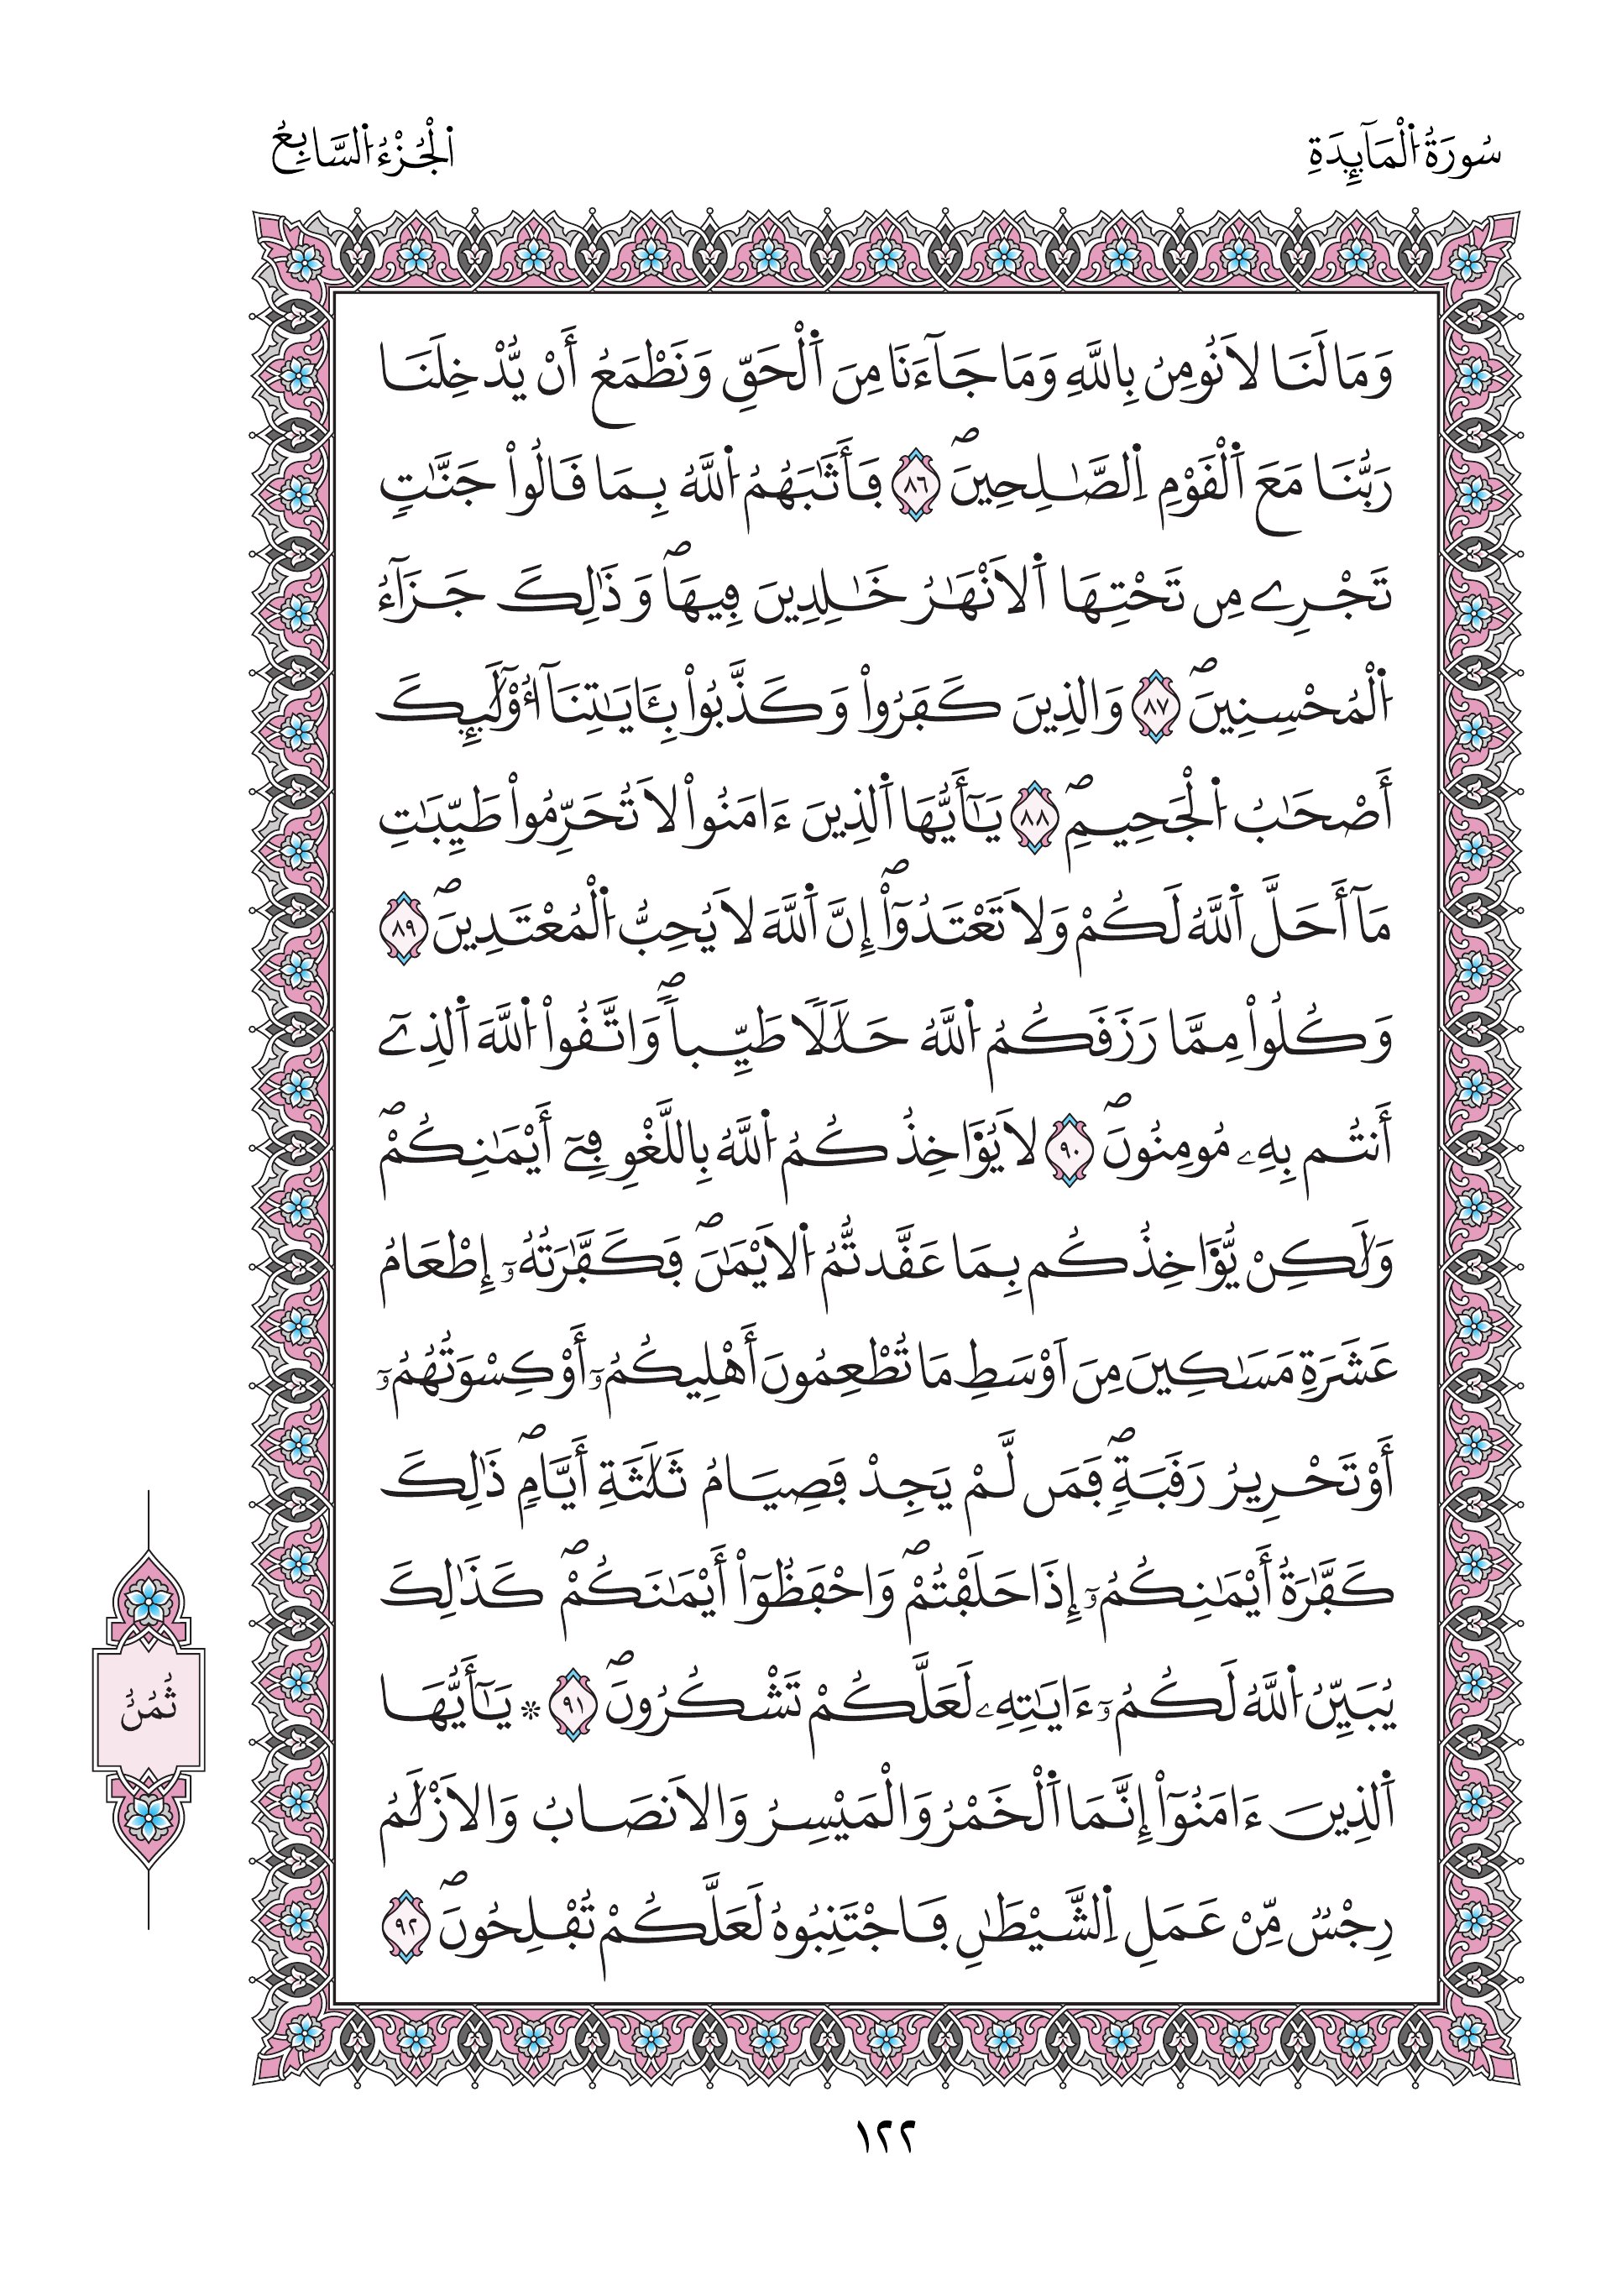 سُورَةُ اُ۬لْمَآئِدَةِ
اَ۬لْجُزْءُ اُ۬لسَّابِعُ
وَمَا لَنَا لَا نُومِنُ بِاللَّهِ وَمَا جَآءَنَا مِنَ اَ۬لْحَقِّ وَنَطْمَعُ أَنْ يُّدْخِلَنَا
رَبُّنَا مَعَ اَ۬لْقَوْمِ اِ۬لصَّٰلِحِينَۖ ٨٦ فَأَثَٰبَهُمُ اُ۬للَّهُ بِمَا قَالُواْ جَنَّٰتٖ
تَجْرِے مِن تَحْتِهَا اَ۬لَانْهَٰرُ خَٰلِدِينَ فِيهَاۖ وَذَٰلِكَ جَزَآءُ
اُ۬لْمُحْسِنِينَۖ ٨٧ وَالذِينَ كَفَرُواْ وَكَذَّبُواْ بِـَٔايَٰتِنَآ أُوْلَٰٓئِكَ
أَصْحَٰبُ اُ۬لْجَحِيمِۖ ٨٨ يَٰٓأَيُّهَا اَ۬لذِينَ ءَامَنُواْ لَا تُحَرِّمُواْ طَيِّبَٰتِ
مَآ أَحَلَّ اَ۬للَّهُ لَكُمْ وَلَا تَعْتَدُوٓاْۖ إِنَّ اَ۬للَّهَ لَا يُحِبُّ اُ۬لْمُعْتَدِينَۖ ٨٩
وَكُلُواْ مِمَّا رَزَقَكُمُ اُ۬للَّهُ حَلَٰلاٗ طَيِّباٗۖ وَاتَّقُواْ اُ۬للَّهَ اَ۬لذِےٓ
أَنتُم بِهِۦ مُومِنُونَۖ ٩٠ لَا يُؤَاخِذُكُمُ اُ۬للَّهُ بِاللَّغْوِ فِےٓ أَيْمَٰنِكُمْۖ
وَلَٰكِنْ يُّؤَاخِذُكُم بِمَا عَقَّدتُّمُ اُ۬لَايْمَٰنَۖ فَكَفَّٰرَتُهُۥٓ إِطْعَامُ
عَشَرَةِ مَسَٰكِينَ مِنَ اَوْسَطِ مَا تُطْعِمُونَ أَهْلِيكُمُۥٓ أَوْ كِسْوَتُهُمُۥٓ
أَوْ تَحْرِيرُ رَقَبَةٖۖ فَمَن لَّمْ يَجِدْ فَصِيَامُ ثَلَٰثَةِ أَيَّامٖۖ ذَٰلِكَ
كَفَّٰرَةُ أَيْمَٰنِكُمُۥٓ إِذَا حَلَفْتُمْۖ وَاحْفَظُوٓاْ أَيْمَٰنَكُمْۖ كَذَٰلِكَ
يُبَيِّنُ اُ۬للَّهُ لَكُمُۥٓ ءَايَٰتِهِۦ لَعَلَّكُمْ تَشْكُرُونَۖ ٩١ * يَٰٓأَيُّهَا
اَ۬لذِينَ ءَامَنُوٓاْ إِنَّمَا اَ۬لْخَمْرُ وَالْمَيْسِرُ وَالَانصَابُ وَالَازْلَٰمُ
رِجْسٞ مِّنْ عَمَلِ اِ۬لشَّيْطَٰنِ فَاجْتَنِبُوهُ لَعَلَّكُمْ تُفْلِحُونَۖ ٩٢
ثُمُنُ
١٢٢